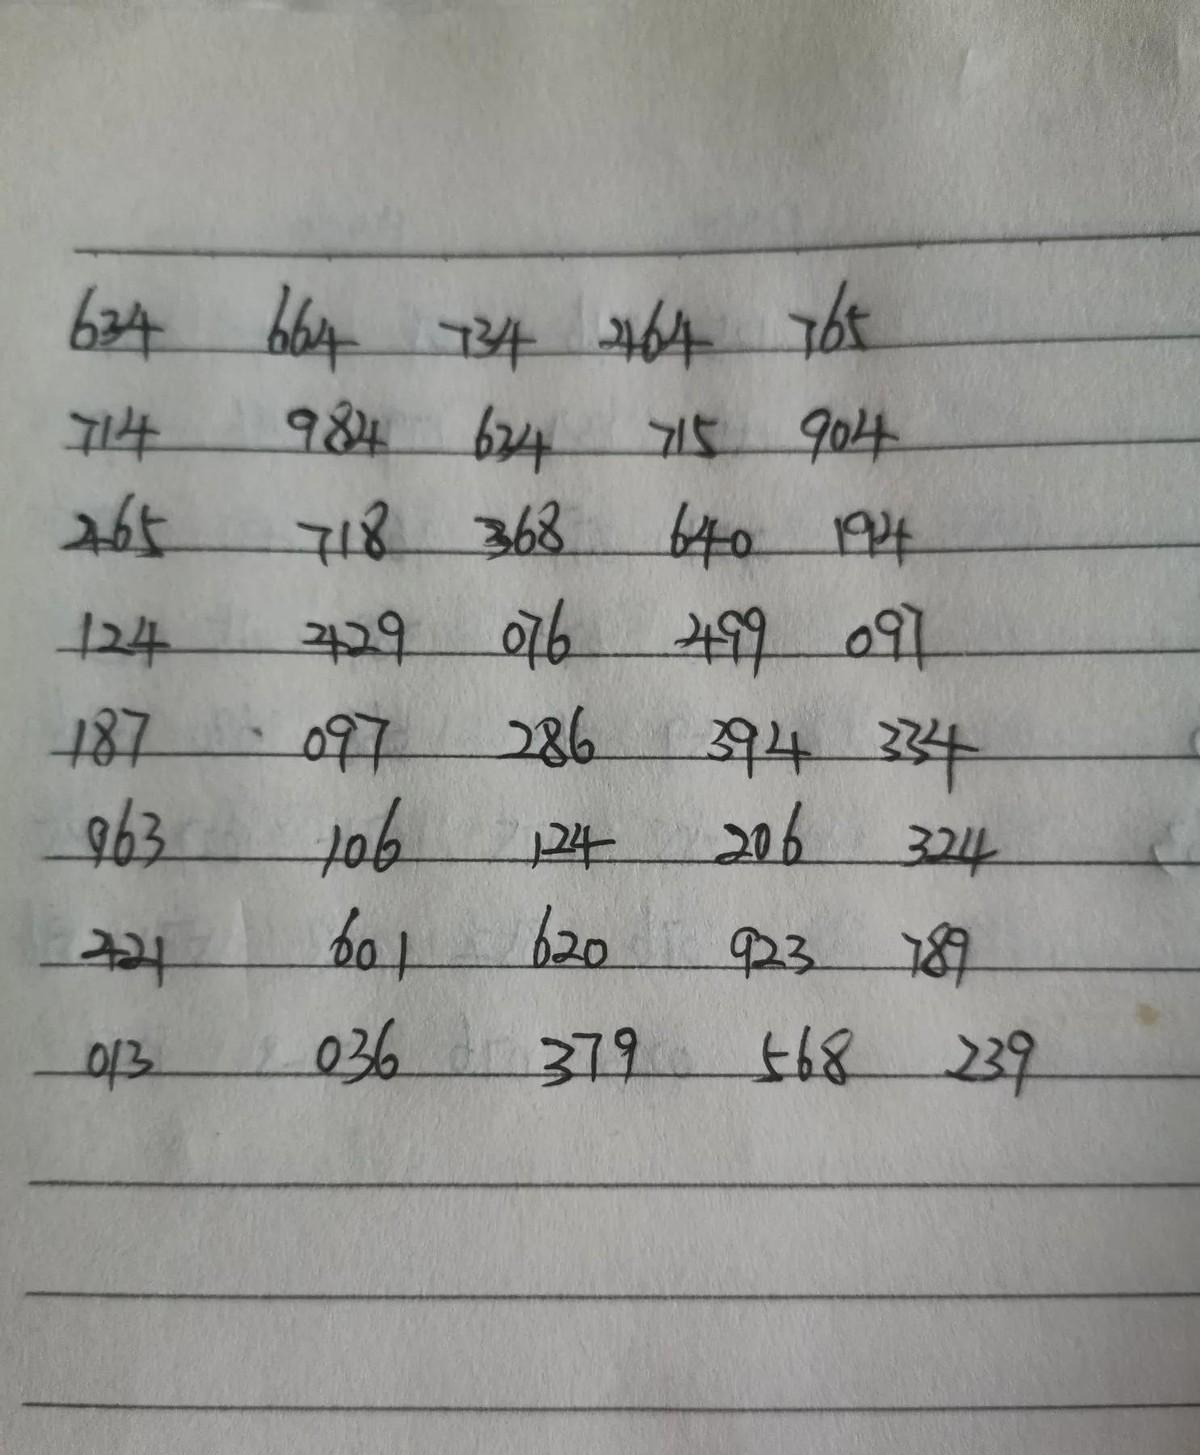 634 664 734 464 765
714 984 634 715 904
465 718 368 640 194
124 429 076 499 097
187 097 286 394 334
963 106 124 206 324
421 601 620 923 789
013 036 379 568 239